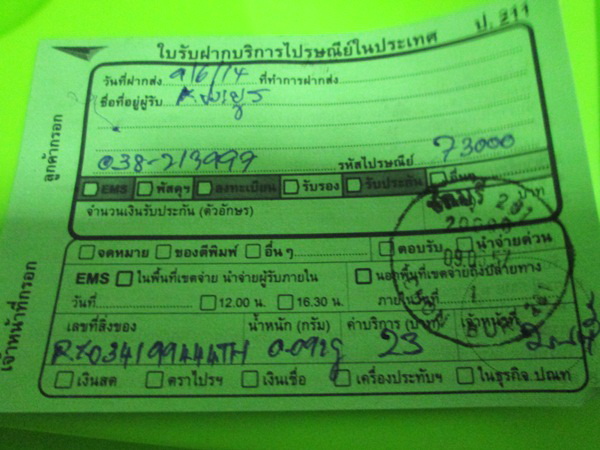 ป. 211
ใบรับฝากบริการไปรษณีย์ในประเทศ
วันที่ฝากส่ง 9/6/14 ที่ทำการฝากส่ง
ชื่อที่อยู่ผู้รับ
038-213999 รหัสไปรษณีย์ 73000
EMS พัสดุฯ ลงทะเบียน รับรอง รับประกัน อื่นๆ
จำนวนเงินรับประกัน (ตัวอักษร) บาท
ลูกค้ากรอก
จดหมาย ของตีพิมพ์ อื่น ๆ ตอบรับ นำจ่ายด่วน
EMS ในพื้นที่เขตจ่าย นำจ่ายผู้รับภายใน นอกพื้นที่เขตจ่ายถึงปลายทาง
วันที่ 12.00 น. 16.30 น. ภายในวันที่
เลขที่สิ่งของ น้ำหนัก (กรัม) ค่าบริการ (บาท) เจ้าหน้าที่
23
เงินสด ตราไปรฯ เงินเชื่อ เครื่องประทับฯ ในธุรกิจ ปณท
เจ้าหน้าที่กรอก
ชลบุรี